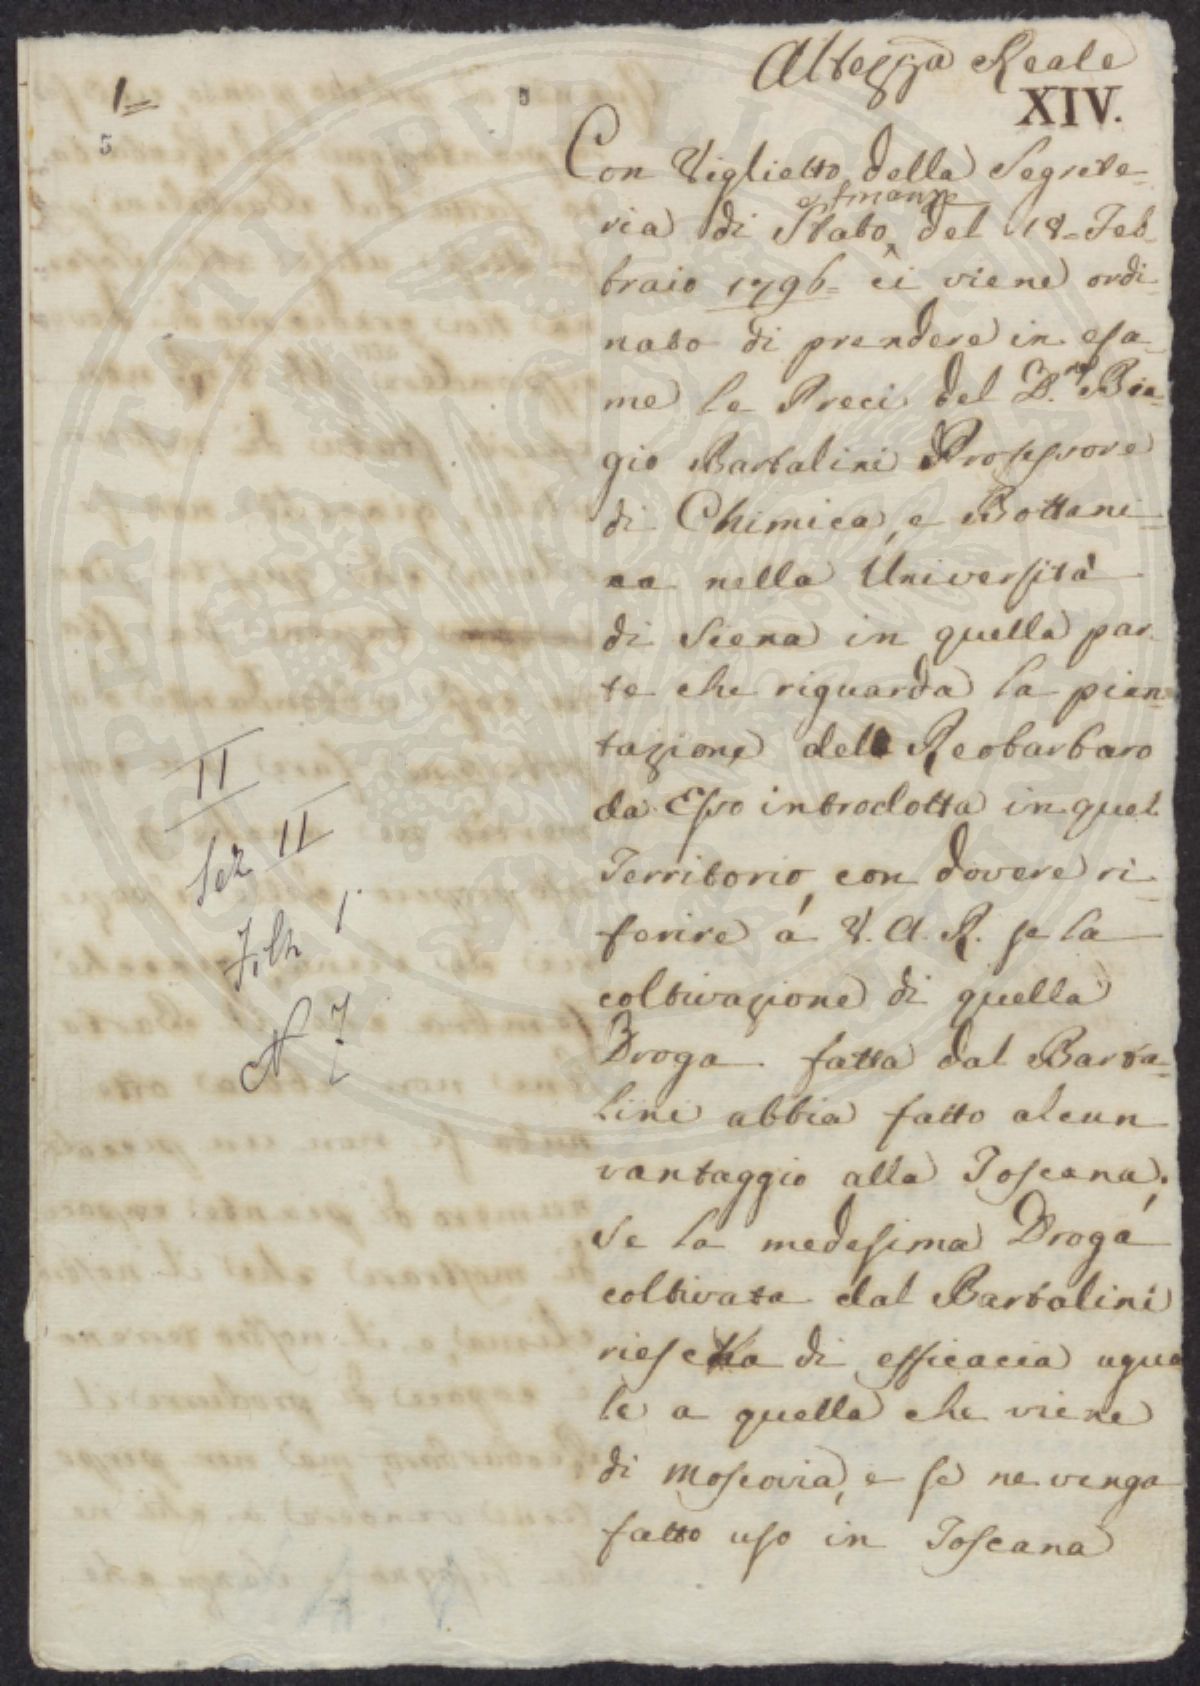 Altezza Reale
XIV.
1
5
Con Viglietto della Segrete=
ria di Stato e finanze del 18= Feb=
braio 1796= ci viene ordi=
nato di prendere in esa=
me le Preci del D.re Bia=
gio Bartalini Professore
di Chimica, e Bottani=
ca nella Università
di Siena in quella par=
te che riguarda la pian=
tazione del Reobarbaro
da Esso introdotta in quel
Territorio, con dovere ri=
ferire á V. A. R. se la
coltivazione di quella
Droga fatta dal Barta=
lini abbia fatto alcun
vantaggio alla Toscana;
Se la medesima Droga
coltivata dal Bartalini
riesca di efficacia ugua
le a quella che viene
di Moscovia, e se ne venga
fatto uso in Toscana
II
Sez II
Filz 1
N 7